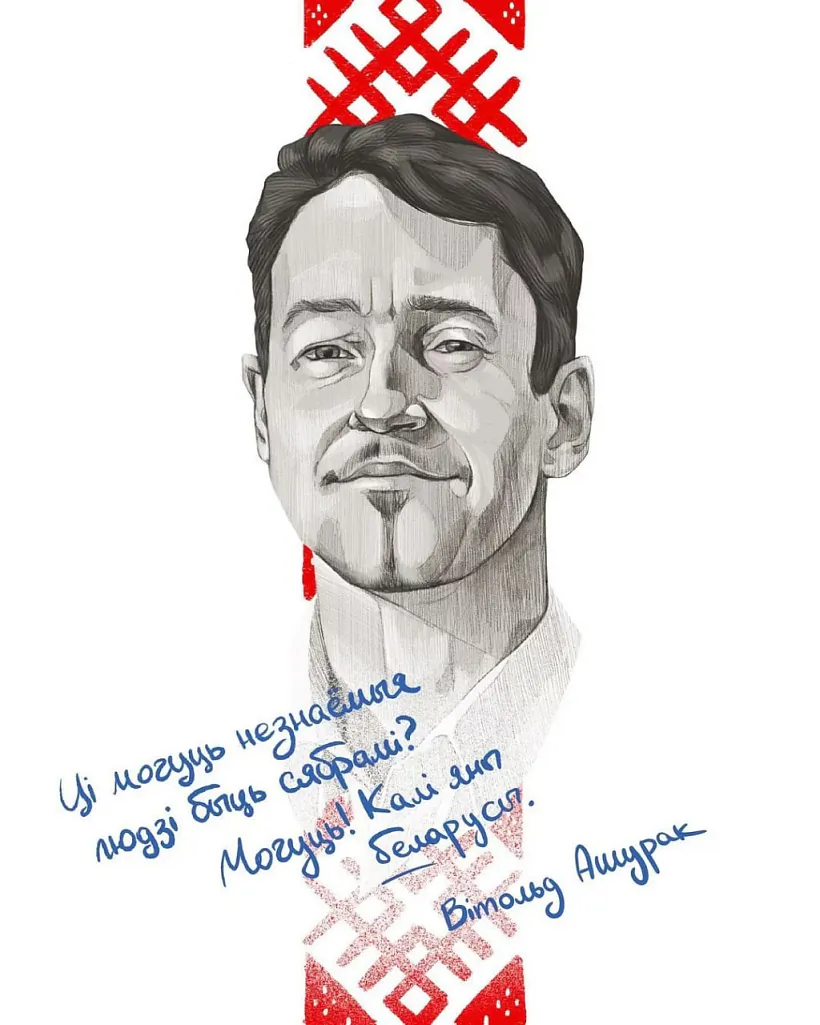 Ці могуць незнаёмыя
людзі быць сябрамі?
Могуць! Калі яны
беларусы.
Вітольд Ашурак